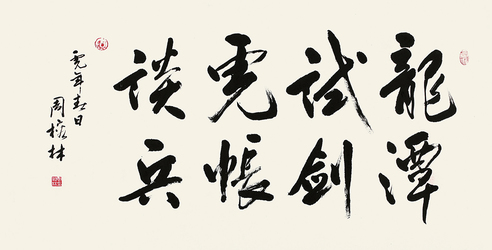 龍潭
試劍
虎帳
談兵
虎年春日
周榕林